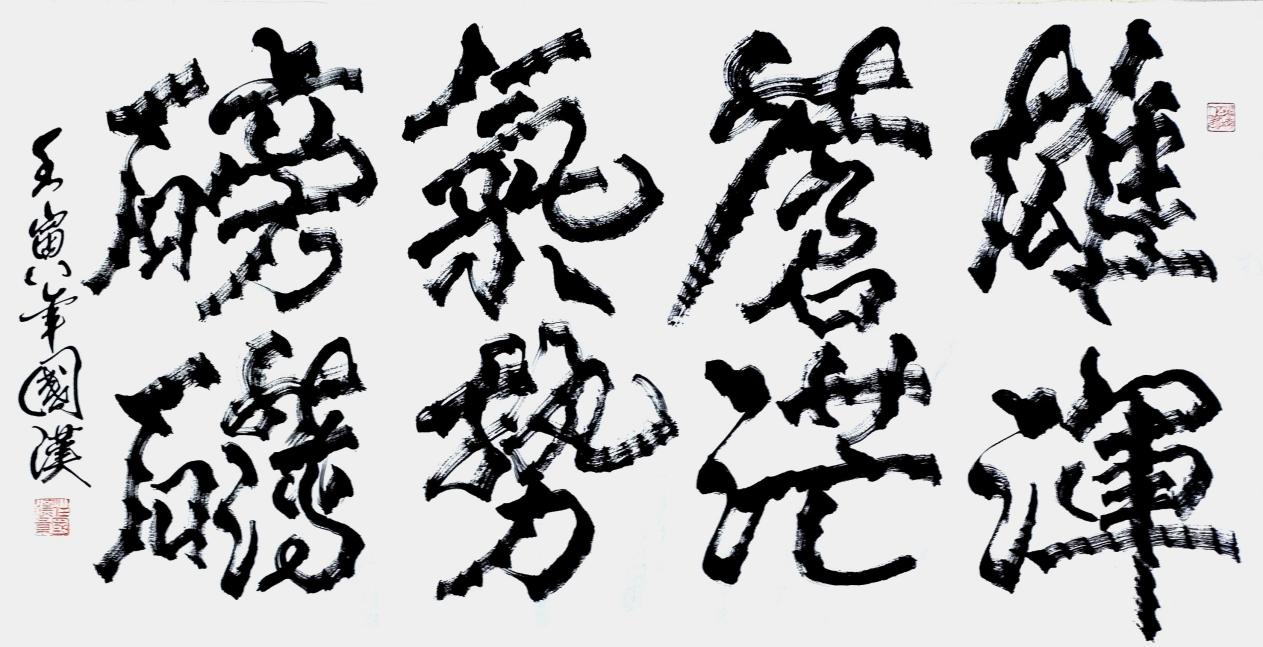 雄渾
蒼茫
氣勢
磅礴
壬寅八年國漢